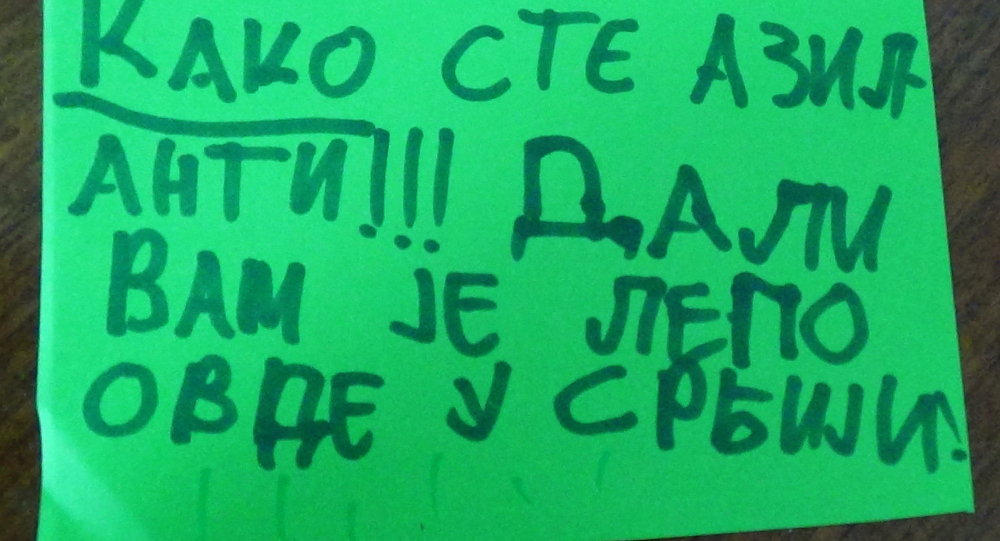 Како сте азил
анти!!! Дали
вам је лепо
овде у Србији!